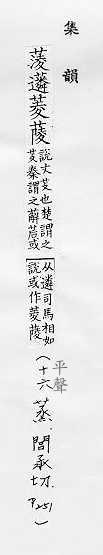 集韻
蔆𧄍菱䔖
說文芰也楚謂之
芰秦謂之薢茩或
从遴司馬相如
說或作菱䔖
(平聲十六蒸．閭承切．P.251)